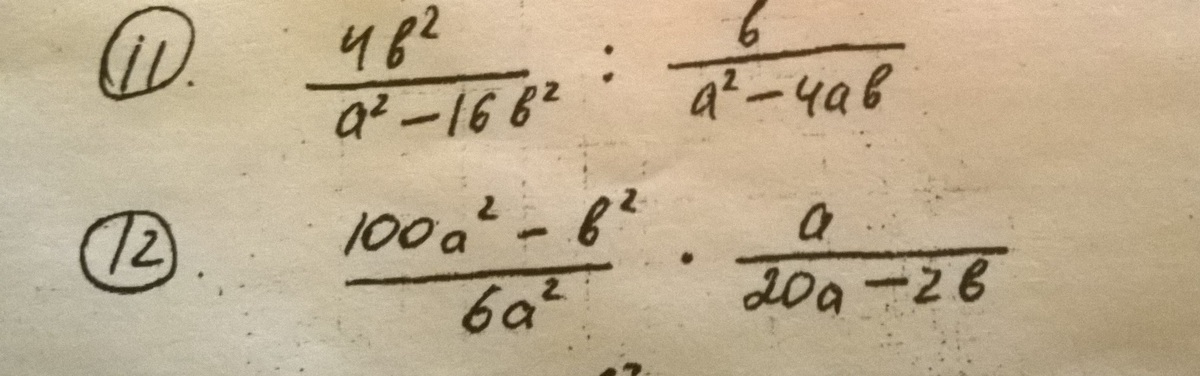 11. 4b²/(a² − 16b²) : b/(a² − 4ab)
12. (100a² − b²)/(6a²) · a/(20a − 2b)